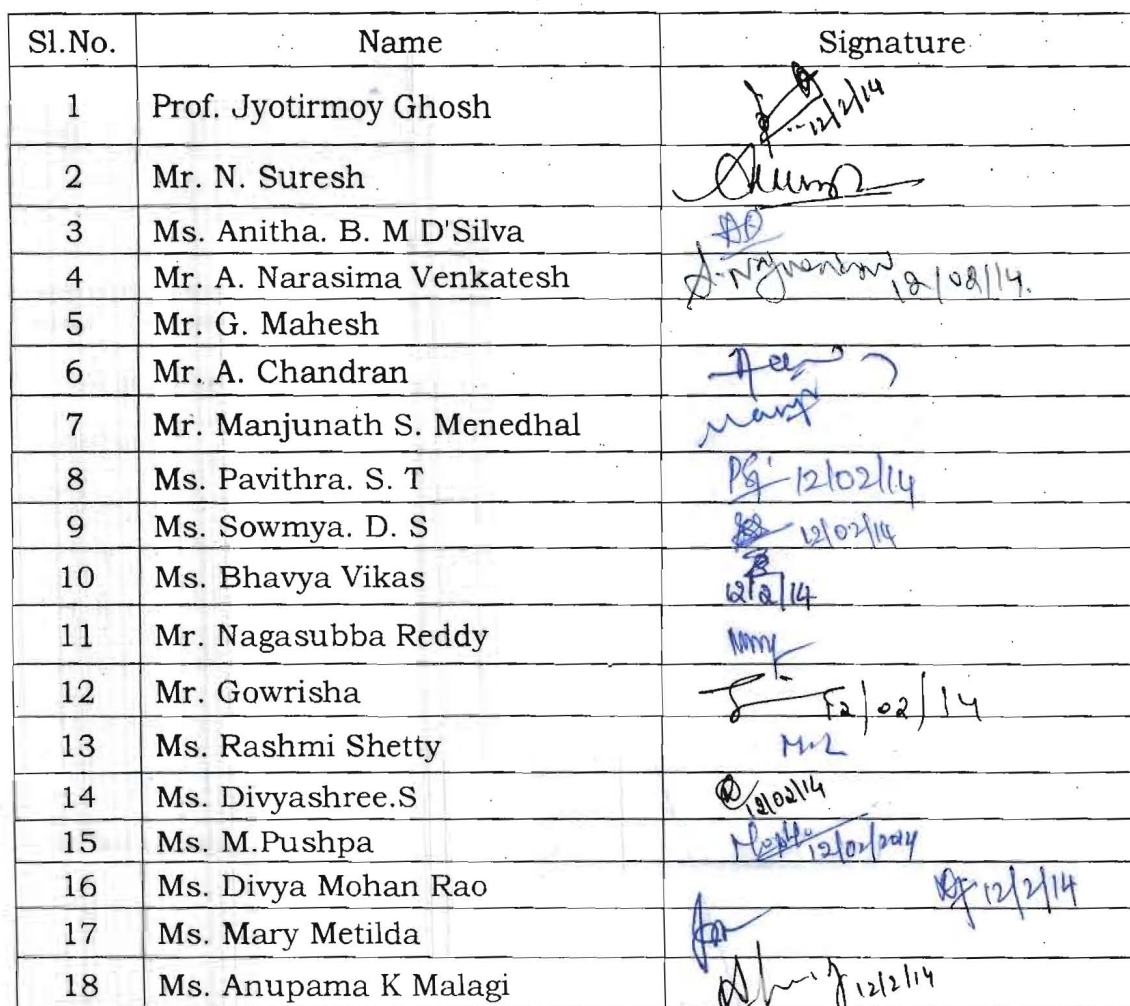 Sl.No. Name Signature
1 Prof. Jyotirmoy Ghosh 12/2/14
2 Mr. N. Suresh
3 Ms. Anitha. B. M D'Silva
4 Mr. A. Narasima Venkatesh 12/02/14.
5 Mr. G. Mahesh
6 Mr. A. Chandran
7 Mr. Manjunath S. Menedhal
8 Ms. Pavithra. S. T 12/02/14
9 Ms. Sowmya. D. S 12/02/14
10 Ms. Bhavya Vikas 12/2/14
11 Mr. Nagasubba Reddy
12 Mr. Gowrisha 12/02/14
13 Ms. Rashmi Shetty
14 Ms. Divyashree.S 12/02/14
15 Ms. M.Pushpa 12/02/2014
16 Ms. Divya Mohan Rao 12/2/14
17 Ms. Mary Metilda
18 Ms. Anupama K Malagi 12/2/14